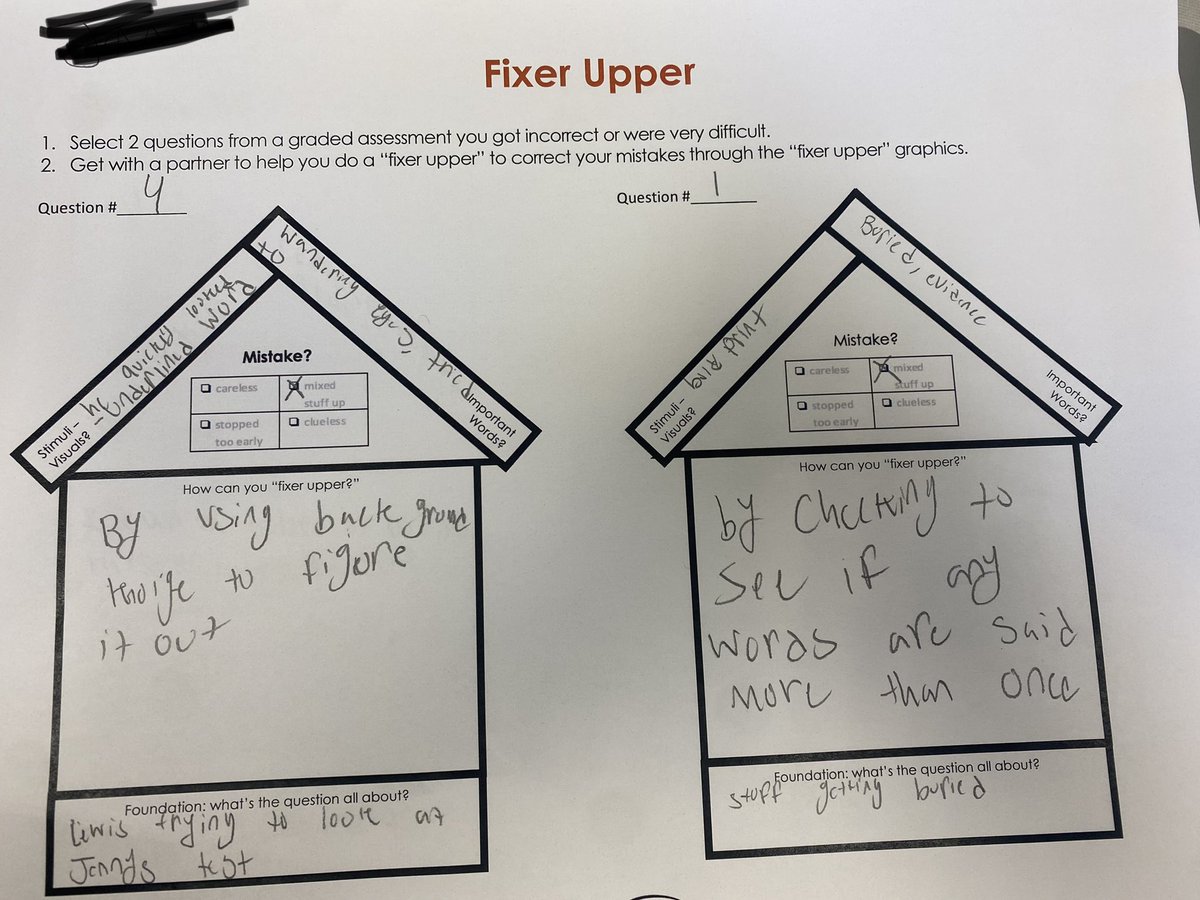 Fixer Upper
1. Select 2 questions from a graded assessment you got incorrect or were very difficult.
2. Get with a partner to help you do a “fixer upper” to correct your mistakes through the “fixer upper” graphics.
Question # 4
Stimuli – he quickd looked to
Visuals? – underlined word
wandering eyes, tried
Important
Words?
Mistake?
careless
mixed
stuff up
stopped
too early
clueless
How can you “fixer upper?”
By using back ground
to figure
it out
Foundation: what's the question all about?
Lewis trying to look at
Jennys test
Question # 1
Stimuli –
Visuals?
Buried, evidence
Important
Words?
Mistake?
careless
mixed
stuff up
stopped
too early
clueless
How can you “fixer upper?”
by Checking to
see if any
words are said
more than once
Foundation: what's the question all about?
stuff getting buried